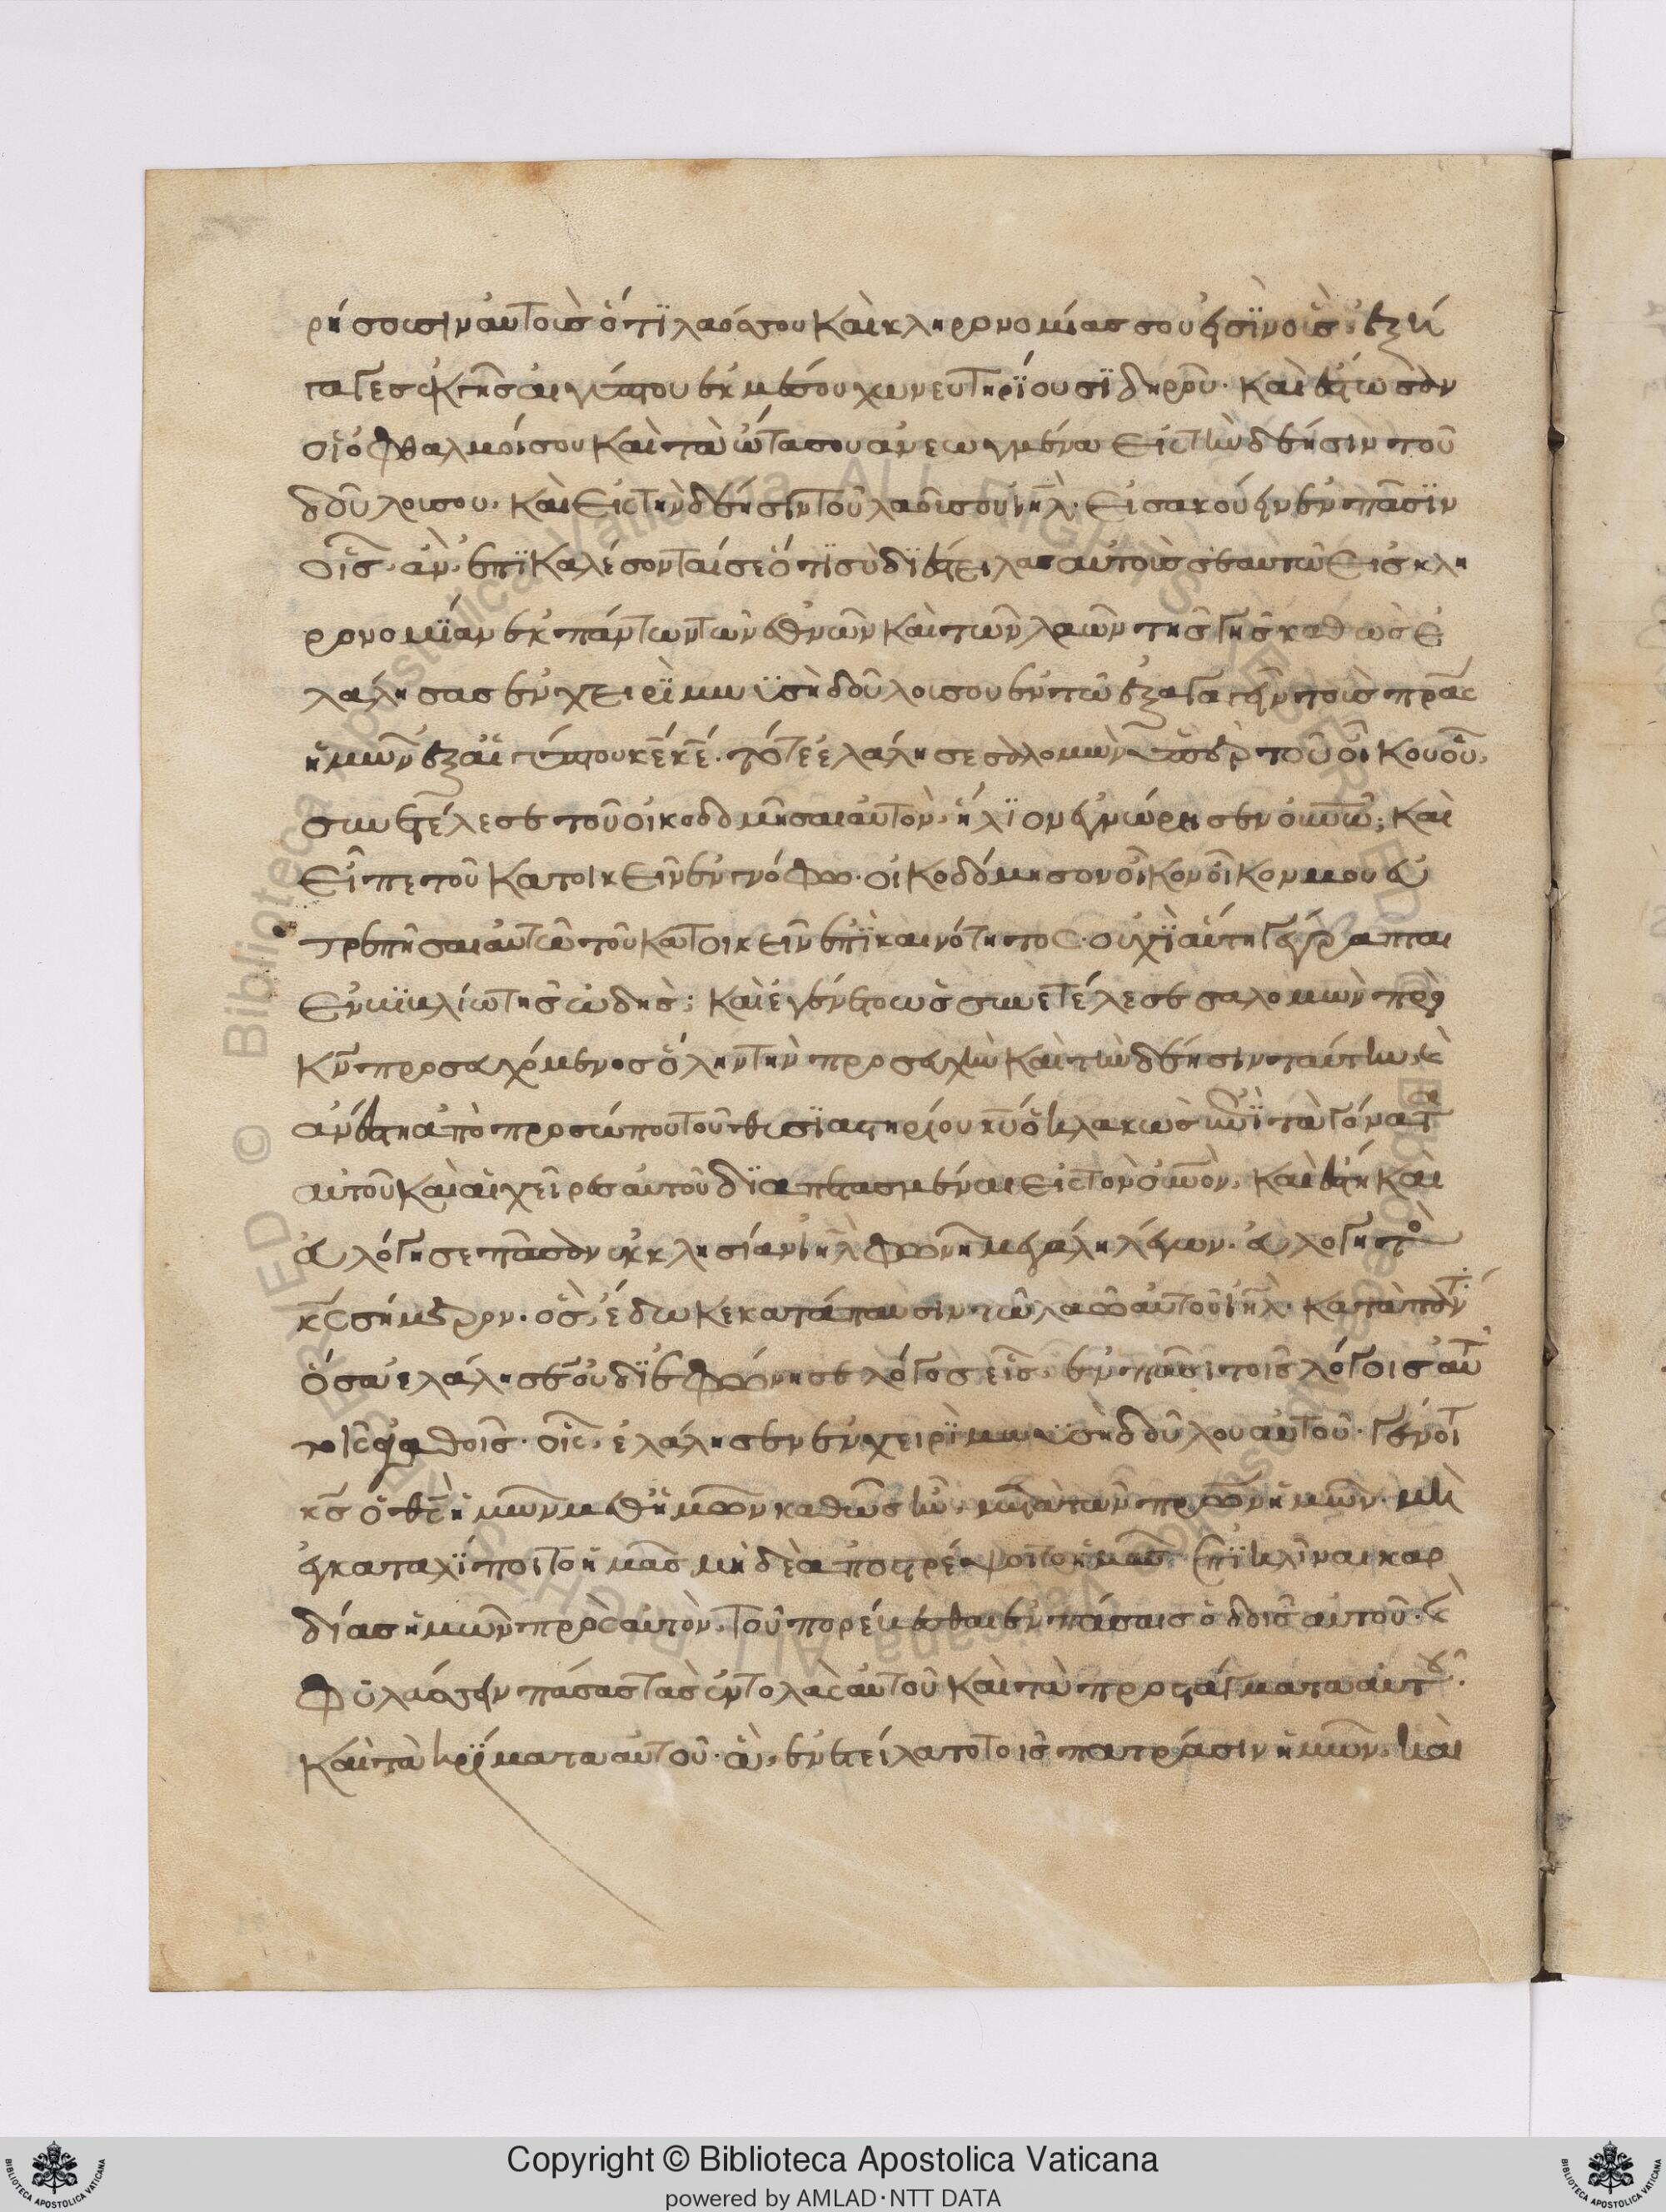 ρήσουσιν αὐτοὺσ ὅτι λαόσ σου καὶ κληρονομίασ σου εἰσὶν οὓσ ἐξή
γαγεσ ἐκ γῆσ αἰγύπτου ἐκ μέσου χωνευτηρίου σιδηροῦ· καὶ ἔστωσαν
οἱ ὀφθαλμοί σου καὶ τὰ ὦτα σου ἀνεωγμένα εἰς τὴν δέησιν τοῦ
δούλου σου· καὶ εἰς τὴν δέησιν τοῦ λαοῦ σου ιηλ· εἰσακούειν ἐν πᾶσιν
οἷσ ἂν ἐπικαλέσονταί σε ὅτι σὺ διέστειλασ αὐτοὺσ σεαυτῶ εἰσ κλη
ρονομίαν ἐκ πάντων τῶν ἐθνῶν καὶ τῶν λαῶν τῆσ γῆσ καθὼσ ἐ
λάλησασ ἐν χειρὶ μωϋσῆ δούλου σου ἐν τῶ ἐξαγαγεῖν τοὺσ πρας
ἡμῶν ἐξ αἰγύπτου κε κε· τότε ἐλάλησε σολομὼν ὑπὲρ τοῦ οἴκου οὗ
συνετέλεσε τοῦ οἰκοδομῆσαι αὐτὸν· ἥλιον ἐγνώρισεν ἐν οὐνω· καὶ
εἶπε τοῦ κατοικεῖν ἐν γνόφω· οἰκοδόμησον οἶκον οἶκον μου εὐ
τρεπῆσαι αὐτῶ τοῦ κατοικεῖν ἐπὶ καινότητος· οὐχὶ αὕτη γέγραπται
ἐν βιβλίω τῆσ ὠδῆσ· καὶ ἐγένετο ὡσ συνετέλεσε σαλομὼν πρὸς
κν προσευχόμενοσ ὅλην τὴν προσευχὴν καὶ τὴν δέησιν ταύτην· καὶ
ἀνέστη ἀπὸ προσώπου τοῦ θυσιαστηρίου κυ ὀκλακὼσ ἐπὶ τὰ γόνατ
αὐτοῦ καὶ αἱ χεῖρεσ αὐτοῦ διαπεπτασμέναι εἰς τὸν οὐνον· καὶ ἔστη καὶ
εὐλόγησε πᾶσαν ἐκκλησίαν ιηλ φωνῆ μεγάλη λέγων· εὐλογητὸ
κς σήμερον· ὃσ ἔδωκε κατάπαυσιν τῶ λαῶ αὐτοῦ ιηλ· κατὰ πάντ
ὅσα ἐλάλησεν οὐ διεφώνησε λόγοσ εἷσ ἐν πᾶσι τοῖσ λόγοισ αὐτ
τοῖς ἀγαθοῖσ· οἷς ἐλάλησεν ἐν χειρὶ μωϋσῆ δούλου αὐτοῦ· γένοιτ
κσ ὁ θς ἡμῶν μεθ ἡμῶν καθὼσ ἦν μετὰ τῶν πρων ἡμῶν· μὴ
ἐγκαταλίποιτο ἡμᾶσ μηδὲ ἀποστρέψοιτο ἡμᾶσ· ἐπικλῖναι καρ
δίασ ἡμῶν πρὸς αὐτὸν· τοῦ πορεύεσθαι ἐν πάσαισ ὁδοῖσ αὐτοῦ· καὶ
φυλάσσειν πάσασ τὰσ ἐντολὰς αὐτοῦ καὶ τὰ προστάγματα αὐτοῦ·
καὶ τὰ κρίματα αὐτοῦ· ἃ ἐνετείλατο τοῖσ πατράσιν ἡμῶν· καὶ
Copyright © Biblioteca Apostolica Vaticana
powered by AMLAD·NTT DATA